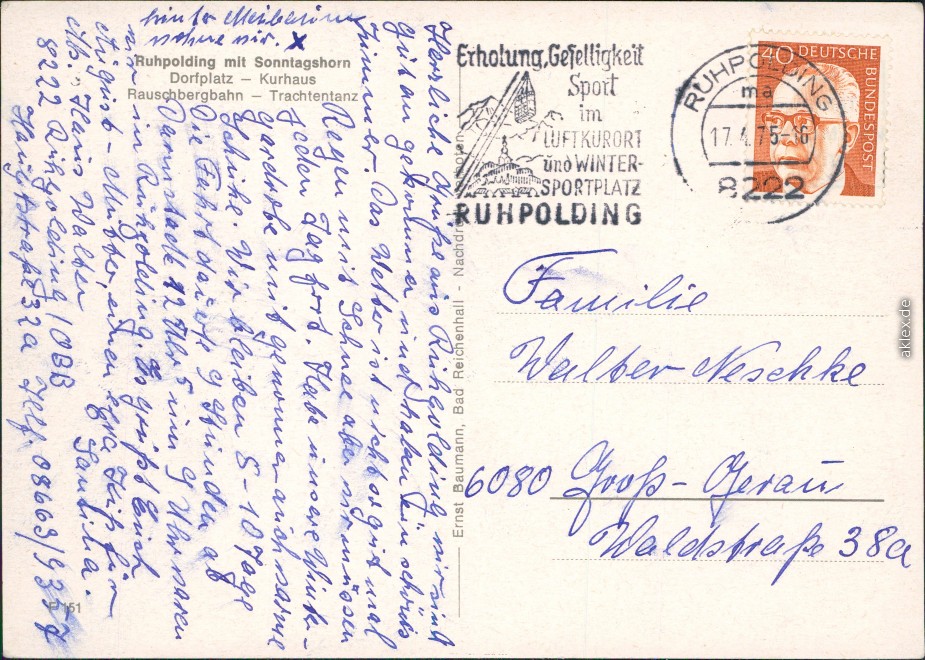 hinter
nehme mir. X
Ruhpolding mit Sonntagshorn
Dorfplatz – Kurhaus
Rauschbergbahn – Trachtentanz
Herzliche Grüße aus Ruhpolding, wir sind
gut angekommen und haben ein schönes
Zimmer. Das Wetter ist nicht so gut mal
Regen mit Schnee aber wir müssen
jeden Tag fort. Habe unsere Winter-
garderobe mitgenommen auch warme
Schuhe. Wir bleiben 8-10 Tage
Die Fahrt dauert 9 Stunden ab
Darmstadt 12 Uhr 5 um 9 Uhr waren
wir in Ruhpolding. Es grüßt Euch
August – Mutter, einen Kuß für
Saskia.
Ab. Haus Walter
8222 Ruhpolding / OBB
Hauptstraße 32a Telf. 08663/9357
E 151
Ernst Baumann, Bad Reichenhall - Nachdruck verboten
Erholung, Geselligkeit
Sport
im
LUFTKURORT
und WINTER-
SPORTPLATZ
RUHPOLDING
RUHPOLDING
ma
17.4.75-16
8222
40 DEUTSCHE
BUNDESPOST
Familie
Walter Neschke
6080 Groß-Gerau
Waldstraße 38a
aklex.de